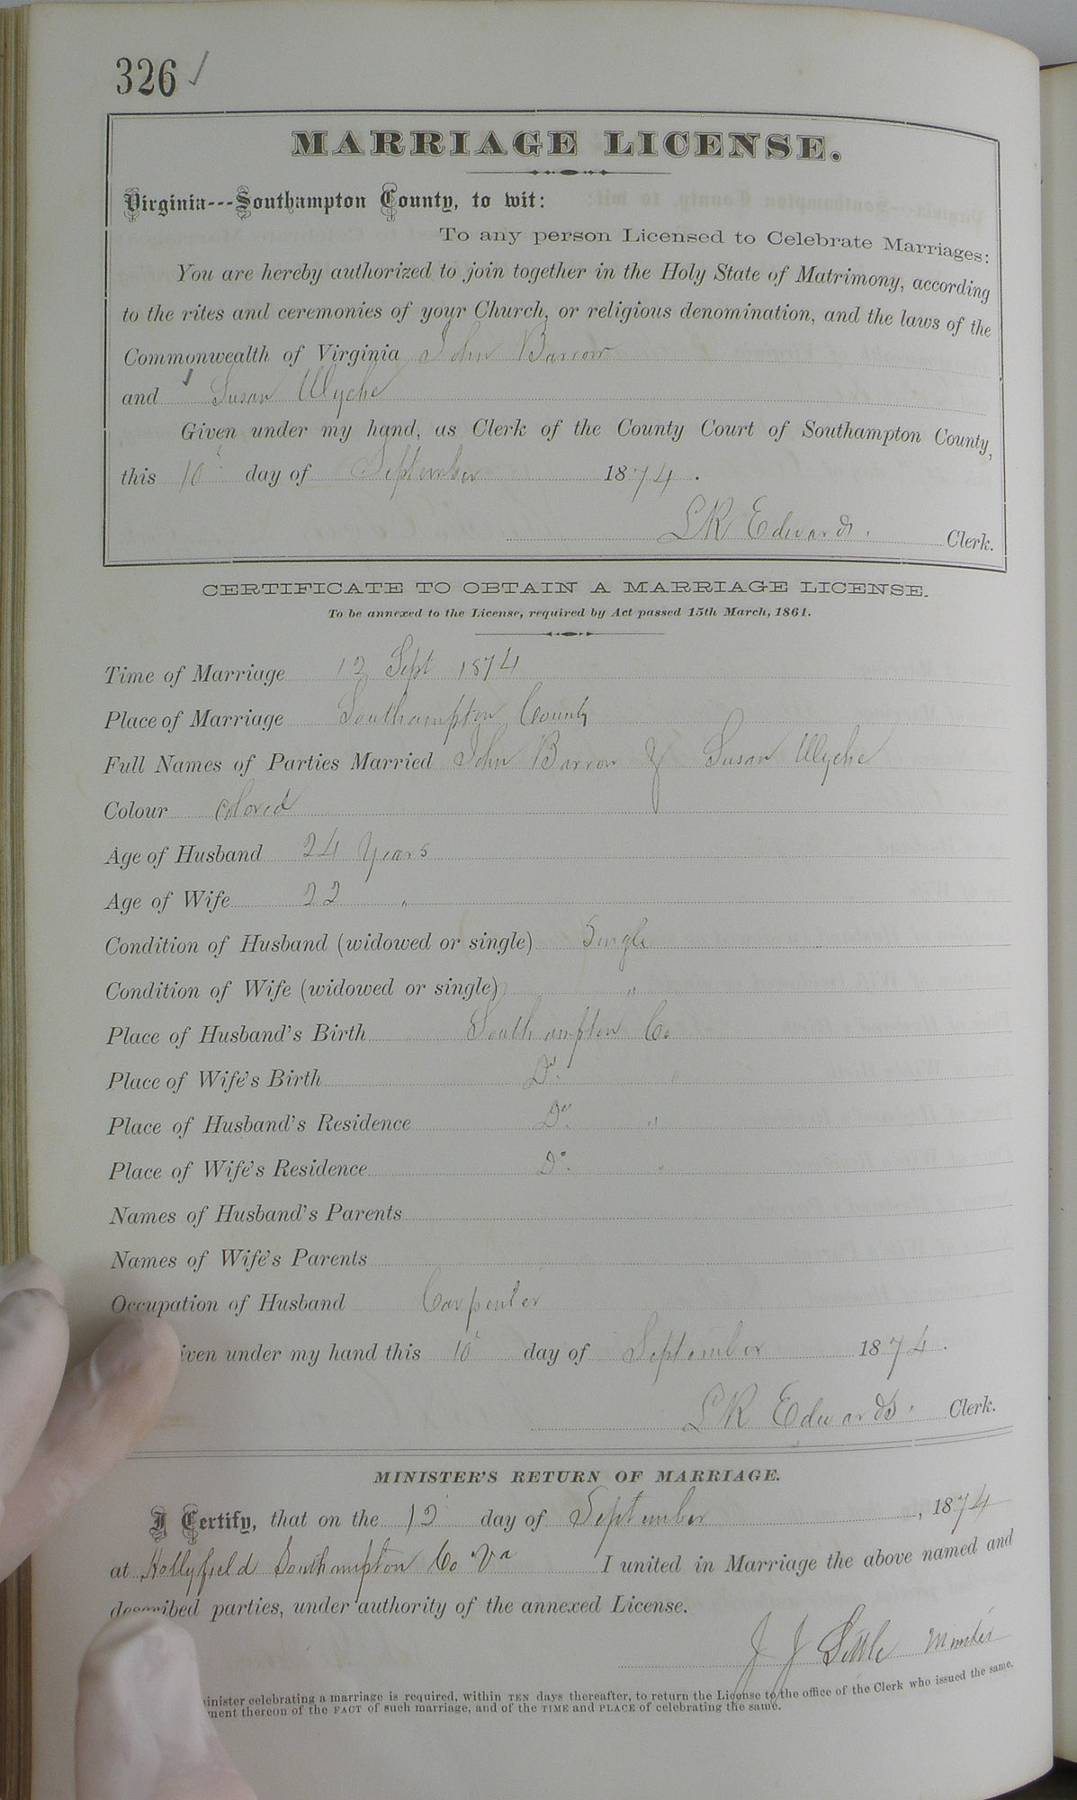 326 ✓
MARRIAGE LICENSE.
Virginia---Southampton County, to wit:
To any person Licensed to Celebrate Marriages:
You are hereby authorized to join together in the Holy State of Matrimony, according
to the rites and ceremonies of your Church, or religious denomination, and the laws of the
Commonwealth of Virginia John Barrow
and Susan Wyche
Given under my hand, as Clerk of the County Court of Southampton County,
this 10 day of September 1874.
L R Edwards. Clerk.
CERTIFICATE TO OBTAIN A MARRIAGE LICENSE.
To be annexed to the License, required by Act passed 15th March, 1861.
Time of Marriage 12 Sept 1874
Place of Marriage Southampton County
Full Names of Parties Married John Barrow & Susan Wyche
Colour Colored
Age of Husband 24 Years
Age of Wife 22 "
Condition of Husband (widowed or single) Single
Condition of Wife (widowed or single) "
Place of Husband's Birth Southampton Co.
Place of Wife's Birth Do. "
Place of Husband's Residence Do. "
Place of Wife's Residence Do. "
Names of Husband's Parents
Names of Wife's Parents
Occupation of Husband Carpenter
iven under my hand this 10 day of September 1874.
L R Edwards. Clerk.
MINISTER'S RETURN OF MARRIAGE.
I Certify, that on the 12 day of September, 1874
at Hollyfield Southampton Co Va I united in Marriage the above named and
described parties, under authority of the annexed License.
J J Little Minister
inister celebrating a marriage is required, within TEN days thereafter, to return the License to the office of the Clerk who issued the same,
ment thereon of the FACT of such marriage, and of the TIME and PLACE of celebrating the same.